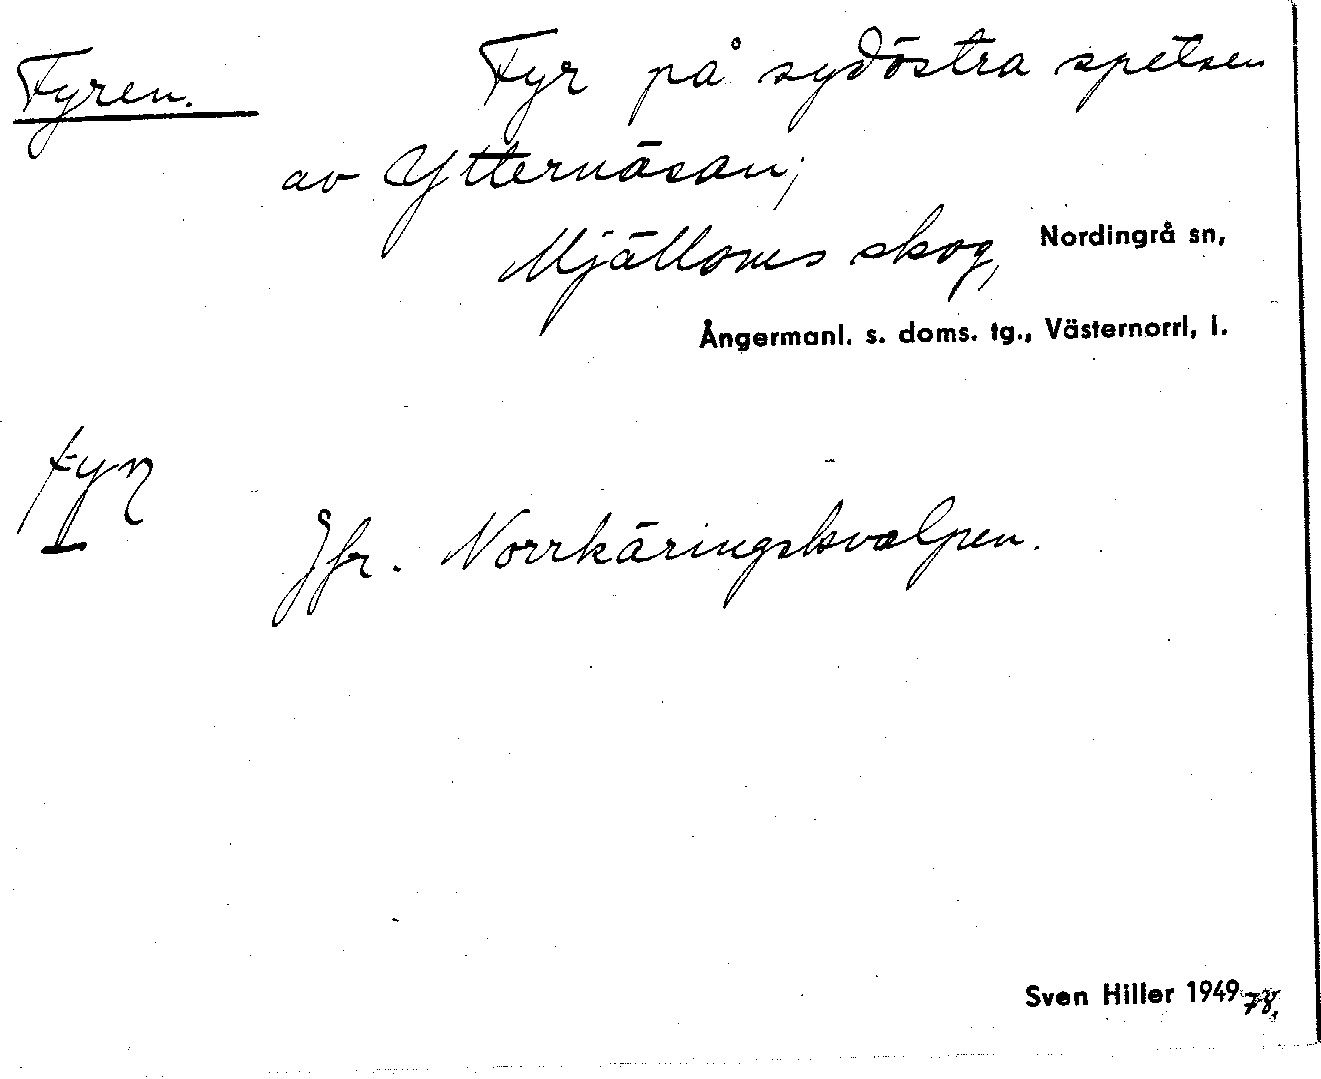 Fyren. Fyr på sydöstra spetsen
av Ytternäsan;
Mjälloms skog, Nordingrå sn,
Ångermanl. s. doms. tg., Västernorrl. l.
fyn
Jfr. Norrkäringskvalpen.
Sven Hiller 1949